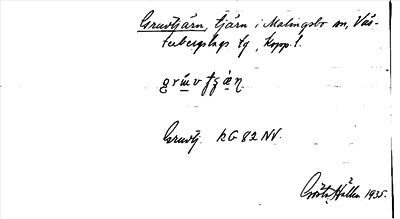 Gruvtjärn, tjärn i Malingsbo sn, Väs-
terbergslags tg, Kopp. l.
Gruvtj. KG 82 NV.
Gösta Hallén 1935.